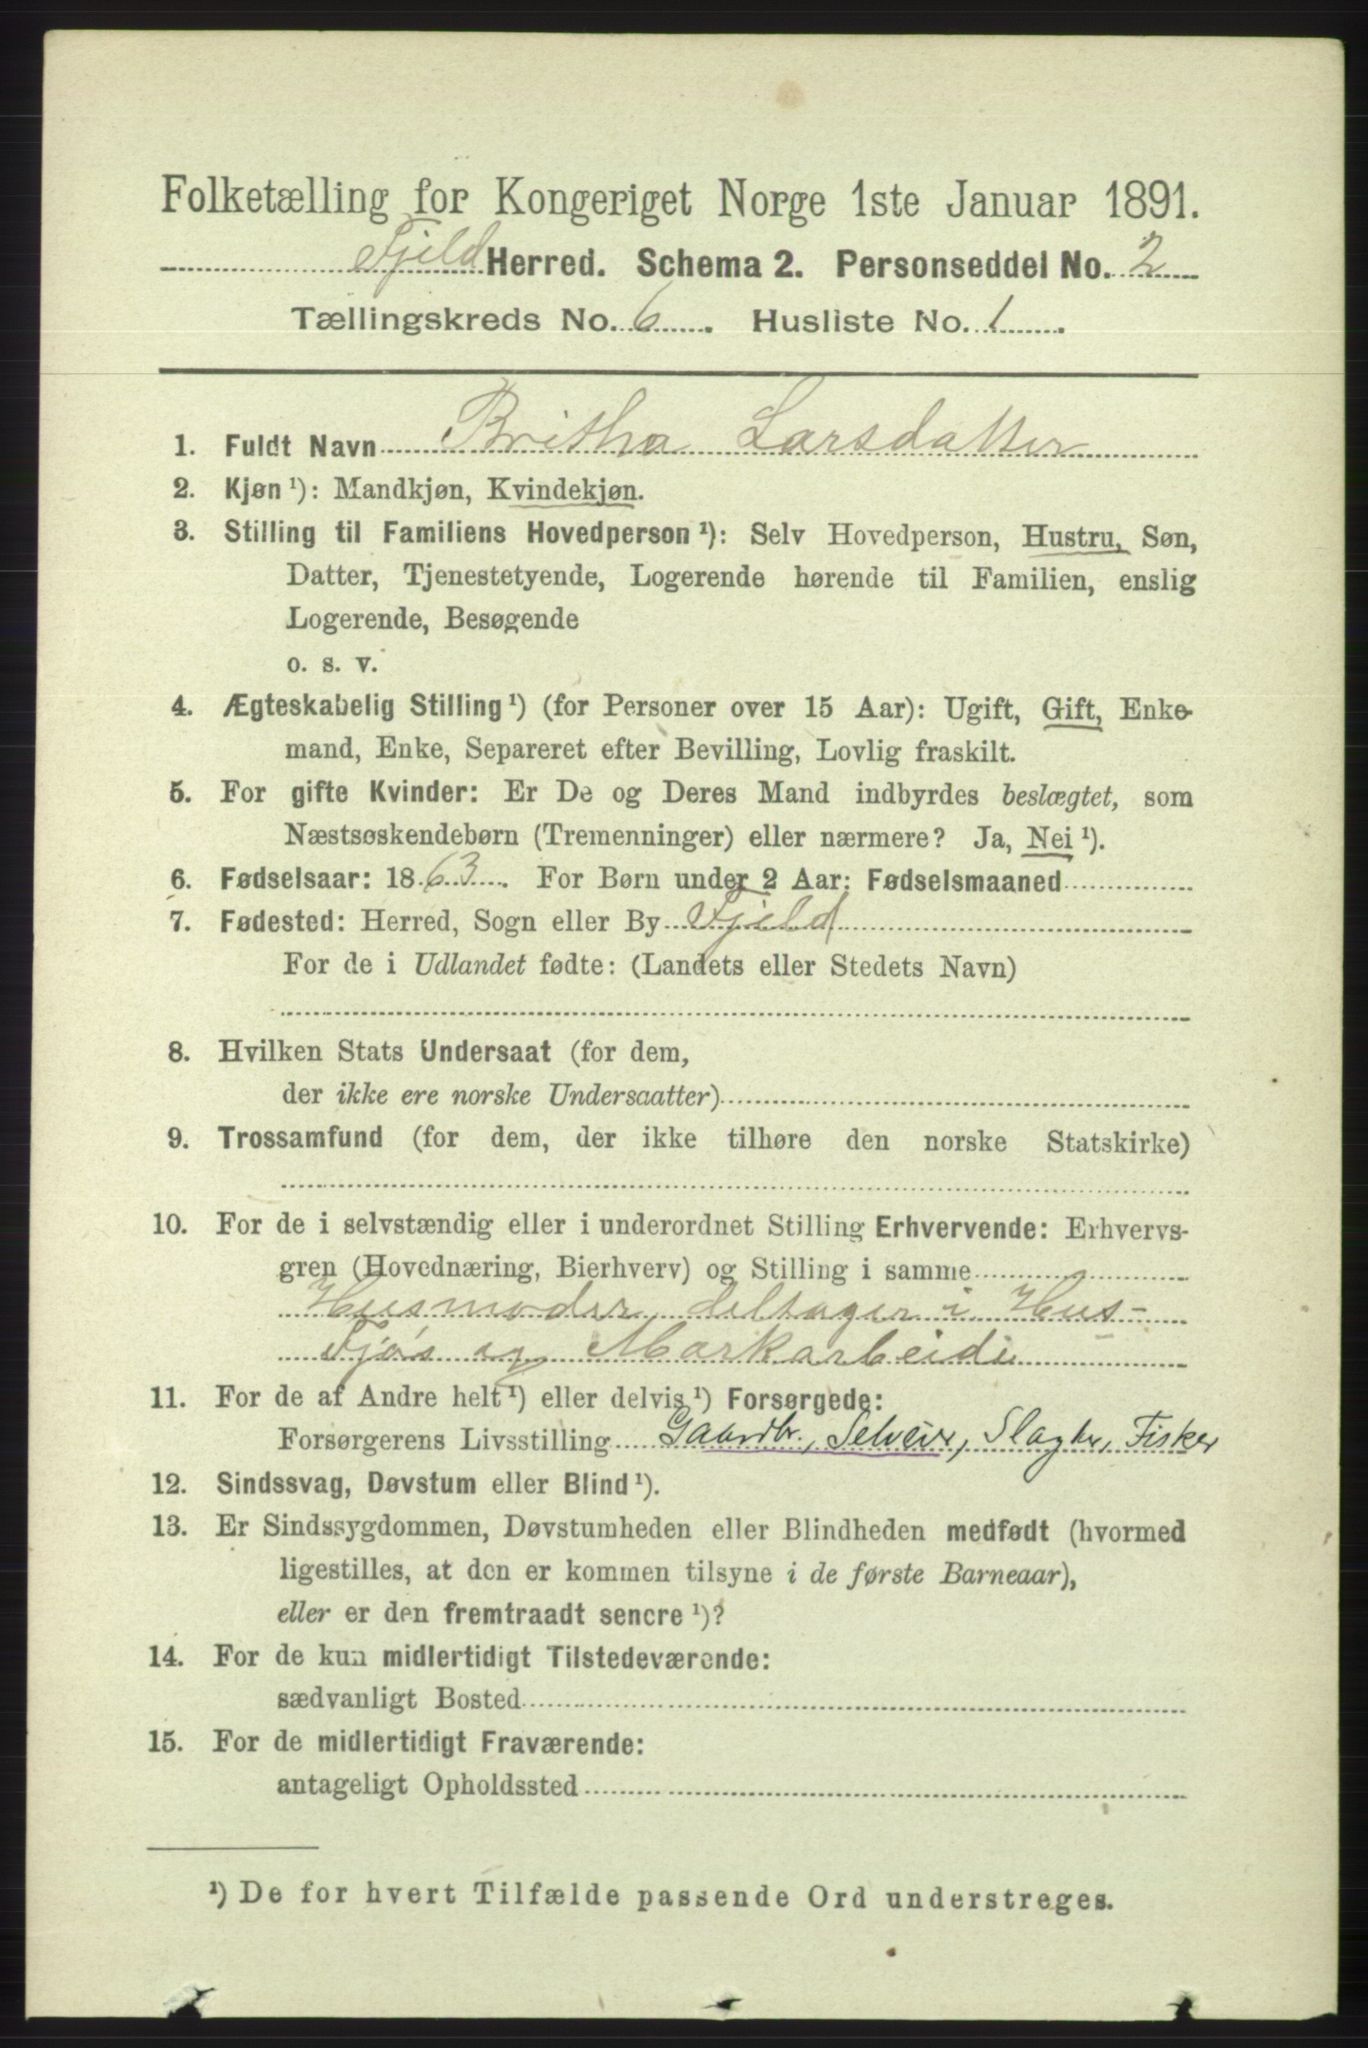 Folketælling for Kongeriget Norge 1ste Januar 1891.
Fjeld Herred. Schema 2. Personseddel No. 2
Tællingskreds No. 6. Husliste No. 1.
1. Fuldt Navn Britha Larsdatter
2. Kjøn ¹): Mandkjøn, Kvindekjøn.
3. Stilling til Familiens Hovedperson ¹): Selv Hovedperson, Hustru, Søn,
Datter, Tjenestetyende, Logerende hørende til Familien, enslig
Logerende, Besøgende
o. s. v.
4. Ægteskabelig Stilling ¹) (for Personer over 15 Aar): Ugift, Gift, Enke-
mand, Enke, Separeret efter Bevilling, Lovlig fraskilt.
5. For gifte Kvinder: Er De og Deres Mand indbyrdes beslægtet, som
Næstsøskendebørn (Tremenninger) eller nærmere? Ja, Nei ¹).
6. Fødselsaar: 1863. For Børn under 2 Aar: Fødselsmaaned
7. Fødested: Herred, Sogn eller By Fjeld
For de i Udlandet fødte: (Landets eller Stedets Navn)
8. Hvilken Stats Undersaat (for dem,
der ikke ere norske Undersaatter)
9. Trossamfund (for dem, der ikke tilhøre den norske Statskirke)
10. For de i selvstændig eller i underordnet Stilling Erhvervende: Erhvervs-
gren (Hovednæring, Bierhverv) og Stilling i samme
Husmoder deltager i Hus-
Fjøs og Markarbeide
11. For de af Andre helt ¹) eller delvis ¹) Forsørgede:
Forsørgerens Livsstilling Gaardbr., Selveier, Slagter, Fisker
12. Sindssvag, Døvstum eller Blind ¹).
13. Er Sindssygdommen, Døvstumheden eller Blindheden medfødt (hvormed
ligestilles, at den er kommen tilsyne i de første Barneaar),
eller er den fremtraadt senere ¹)?
14. For de kun midlertidigt Tilstedeværende:
sædvanligt Bosted
15. For de midlertidigt Fraværende:
antageligt Opholdssted
¹) De for hvert Tilfælde passende Ord understreges.